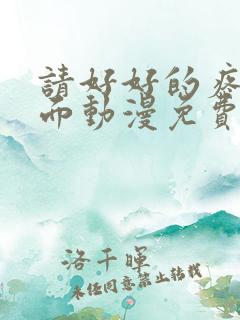 請好好的疼
而動漫免費
洛千暉
未经同意禁止转载